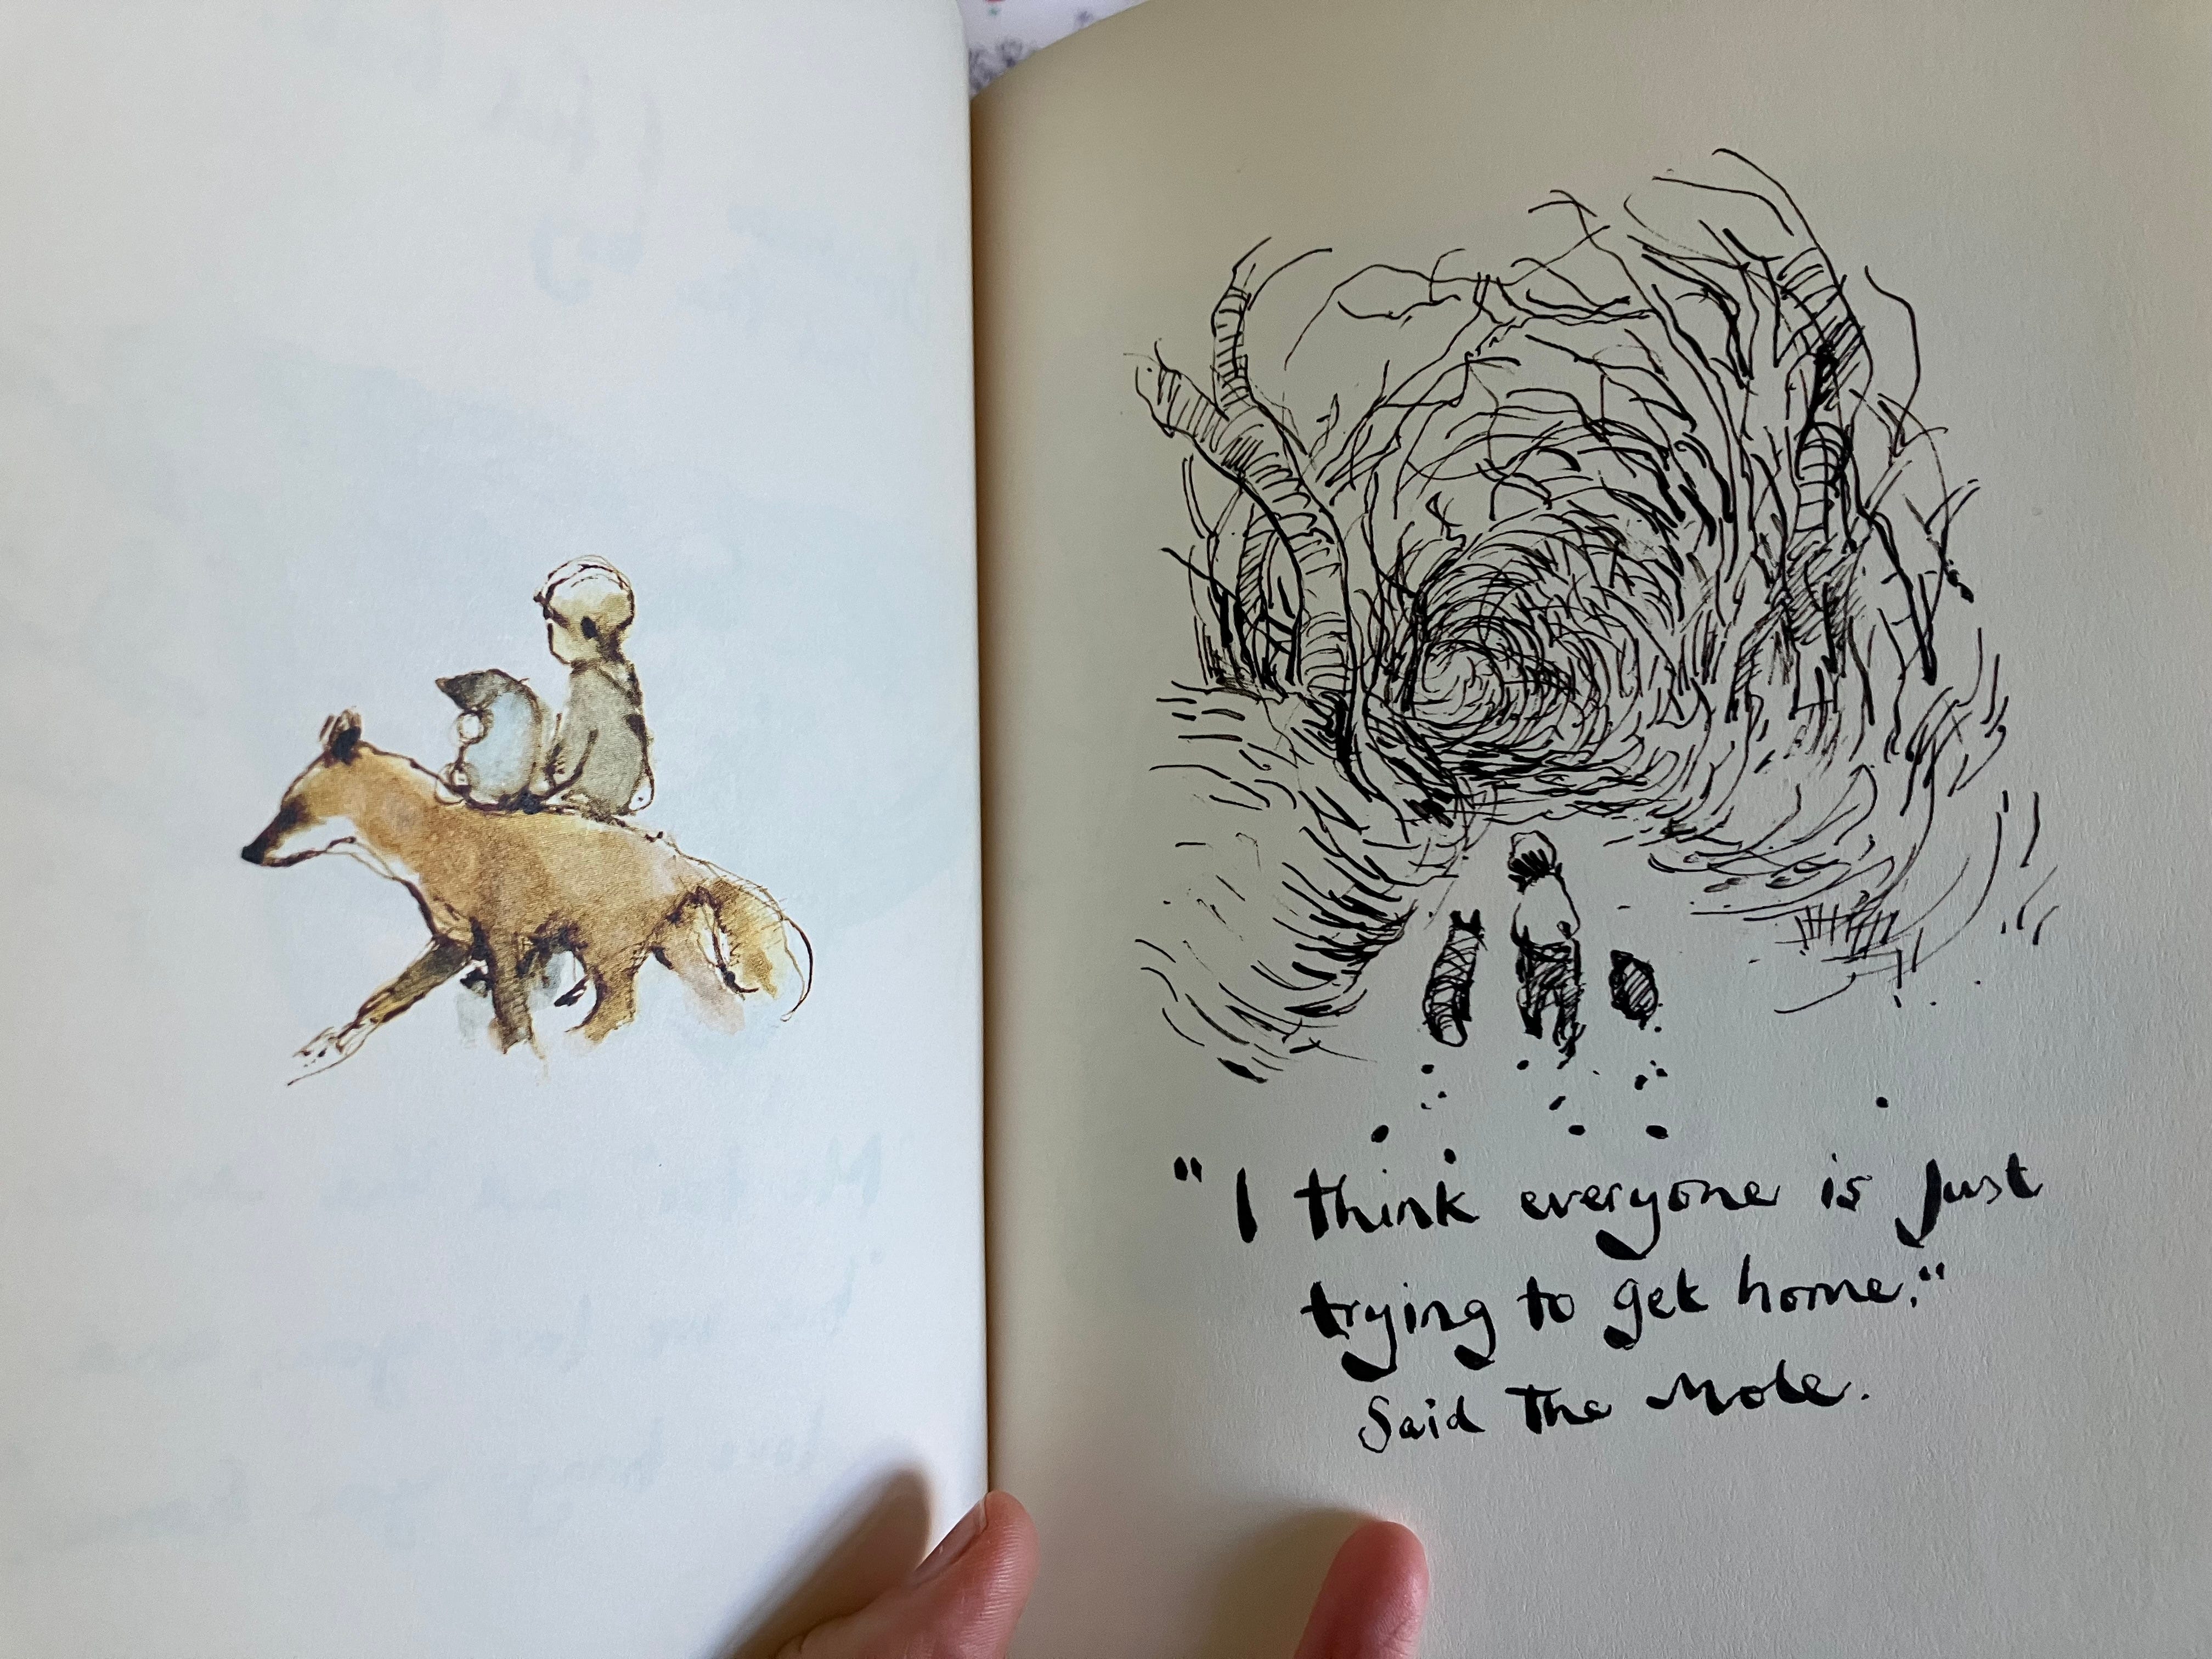 "I think everyone is Just
trying to get home."
Said The Mole.